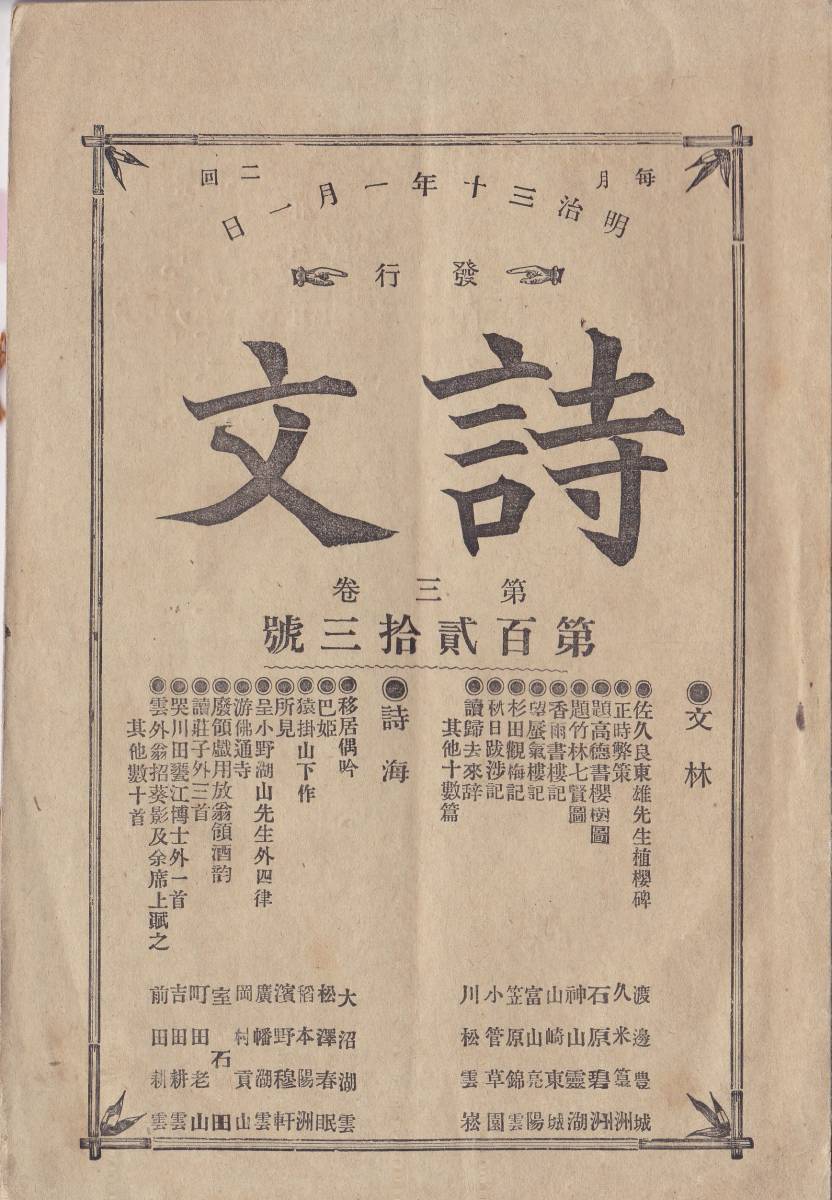 毎月二回
明治三十年一月一日
發行
詩文
第三卷
第百貳拾三號
文林
佐久良東雄先生植櫻碑 渡邊豊城
正時弊策 久米篁洲
題高德書櫻樹圖 石原碧洲
題竹林七賢圖 神山靈湖
香雨書樓記 山崎東城
望蜃氣樓記 富山亮陽
杉田觀梅記 笠原錦雲
秋日跋涉記 小管草園
讀歸去來辞 川松雲崧
其他十數篇
詩海
移居偶吟 大沼湖雲
巴姫 松澤春眠
猿掛山下作 稻本陽洲
所見 濱野穆軒
呈小野湖山先生外四律 廣幡湖雲
游佛通寺 岡村貢山
廢領戯用放翁領酒韵 室石田
讀莊子外三首 町田老山
哭川田甕江博士外一首 吉田耕雲
雲外翁招葵影及余席上賦之 前田耕雲
其他數十首